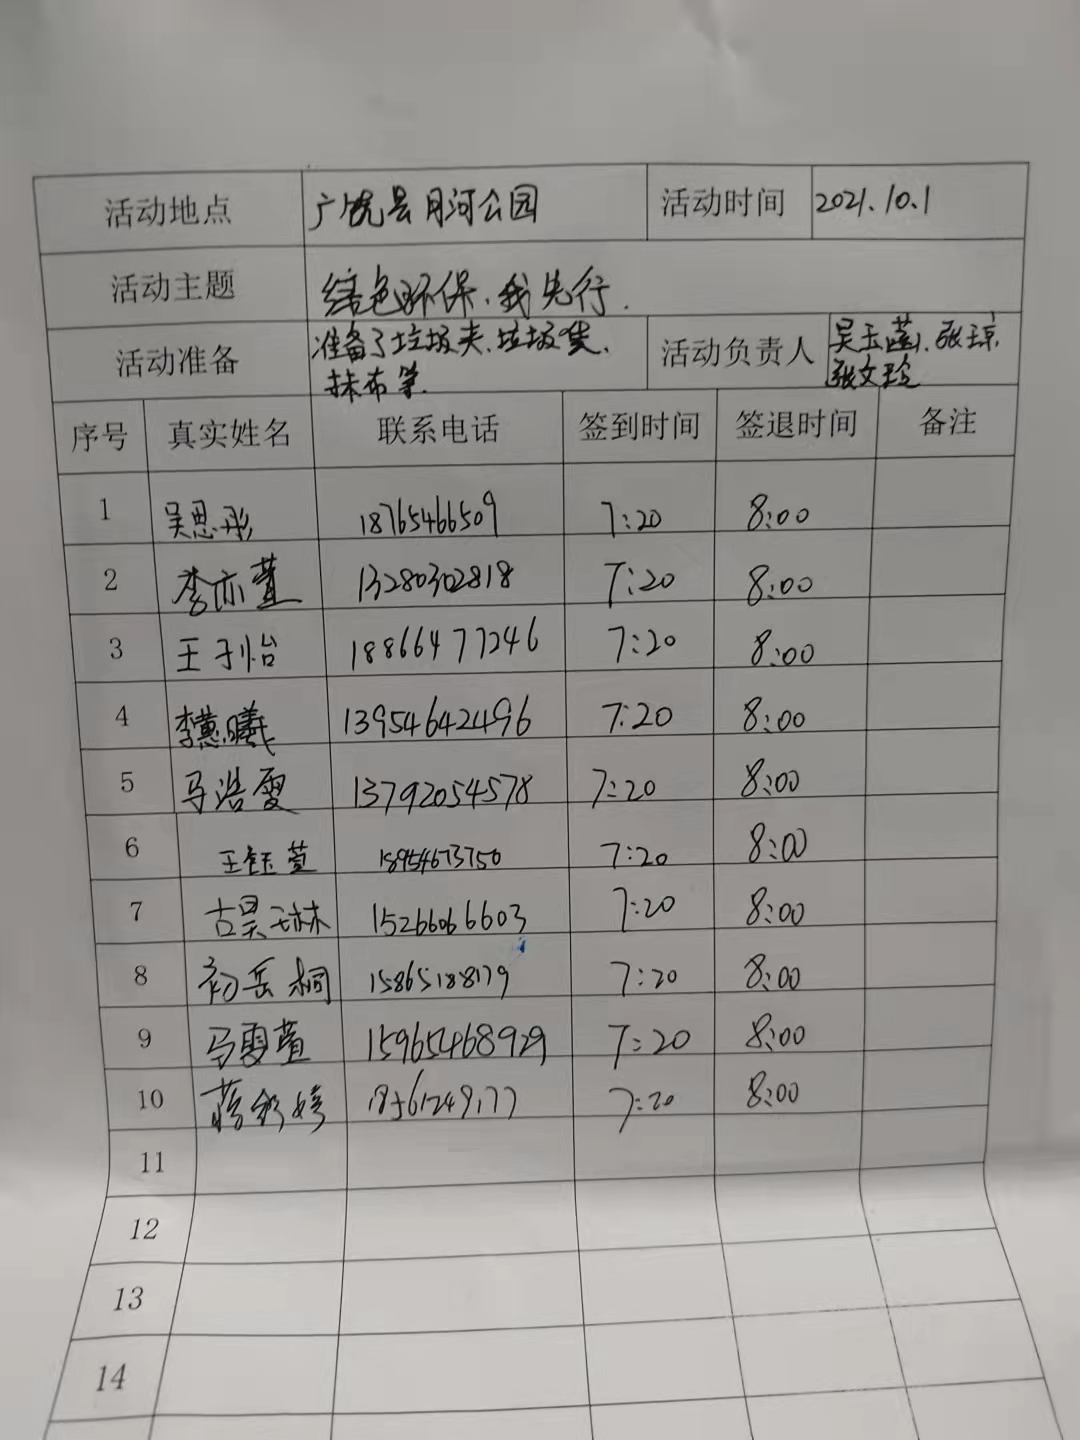 活动地点 广饶县月河公园 活动时间 2021.10.1
活动主题 绿色环保,我先行.
活动准备 准备了垃圾夹、垃圾袋、 活动负责人 吴玉莲、张琼、
抹布等. 张文玲
序号 真实姓名 联系电话 签到时间 签退时间 备注
1 吴思彤 18765466509 7:20 8:00
2 李亦萱 13280302818 7:20 8:00
3 王子怡 18866477246 7:20 8:00
4 李蕙曦 13954642496 7:20 8:00
5 马浩雯 13792054578 7:20 8:00
6 王钰萱 18954673750 7:20 8:00
7 古昊琳 15266066603 7:20 8:00
8 初岳桐 15865188179 7:20 8:00
9 马雯萱 15965468929 7:20 8:00
10 7:20 8:00
11
12
13
14